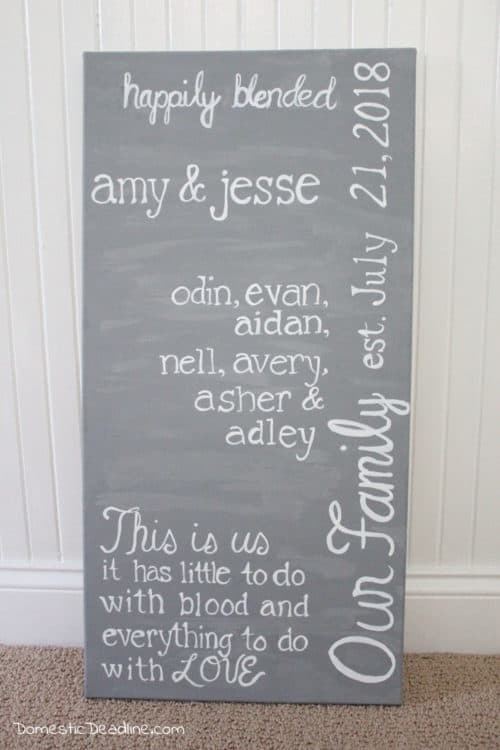 happily blended
amy & jesse
odin, evan,
aidan,
nell, avery,
asher &
adley
This is us
it has little to do
with blood and
everything to do
with LOVE
Our Family est. July 21, 2018
DomesticDeadline.com